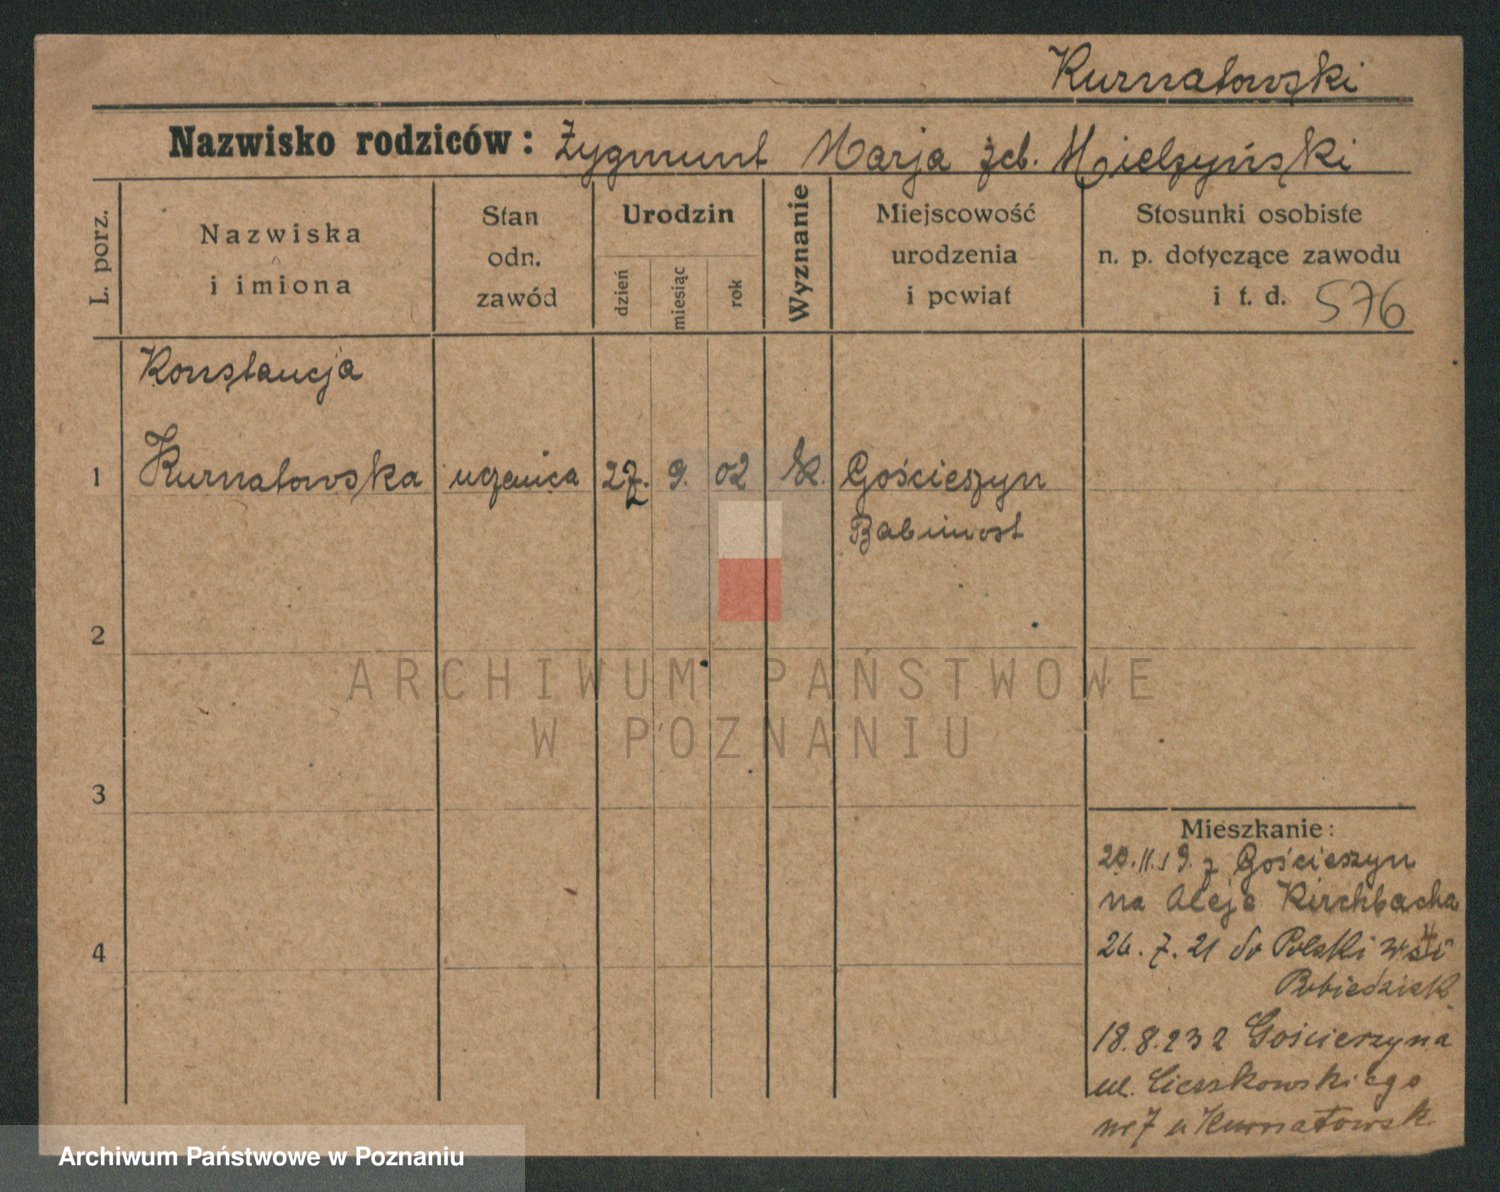 Kurnatowski
Nazwisko rodziców: Zygmunt Marja żeb. Mielżyński
L. porz.
Nazwiska
i imiona
Stan
odn.
zawód
Urodzin
dzień
miesiąc
rok
Wyznanie
Miejscowość
urodzenia
i powiat
Stosunki osobiste
n. p. dotyczące zawodu
i t. d. 576
Konstancja
1 Kurnatowska uczenica 27. 9. 02 k. Gościeszyn
Babimost
2
ARCHIWUM PAŃSTWOWE
W POZNANIU
3
Mieszkanie:
20.11.19. z Gościeszyn
na Aleje Kirchbacha
4
26.7.21 do Polski wsi
Pobiedzisk
18.8.23 z Gościeszyna
ul. Cieszkowskiego
nr 7 u Kurnatowsk
Archiwum Państwowe w Poznaniu